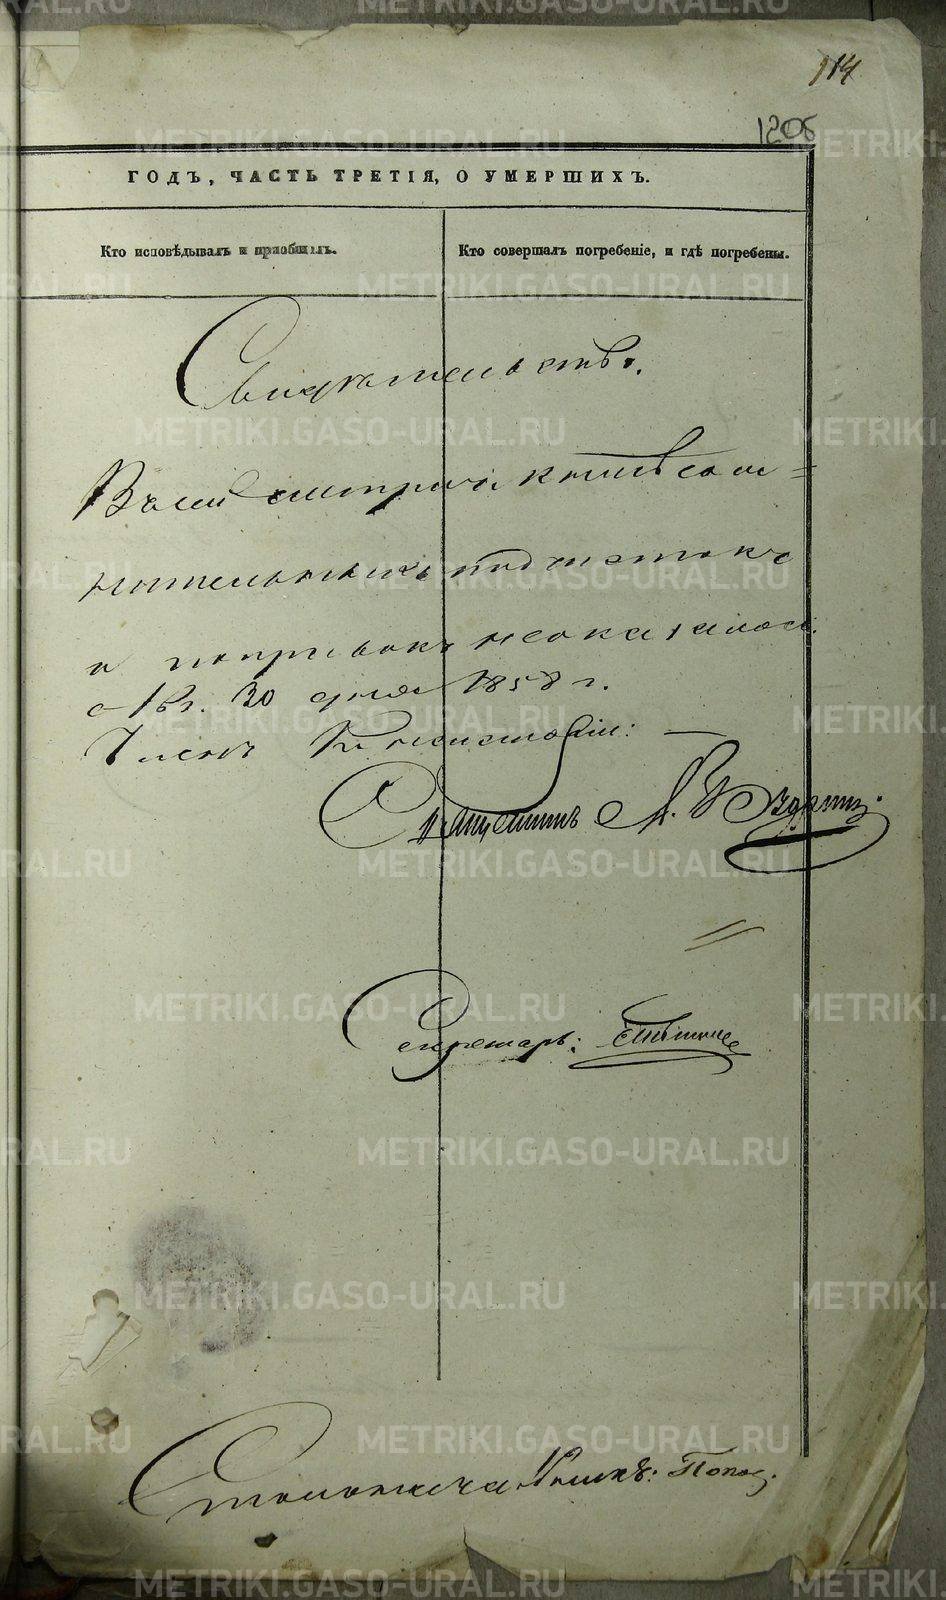 114
1208
ГОДЪ, ЧАСТЬ ТРЕТІЯ, О УМЕРШИХЪ.
Кто исповѣдывалъ и пріобщалъ.
Кто совершалъ погребеніе, и гдѣ погребены.
Свидѣтельство.
Въ сей метрич книгѣ сом=
нительныхъ подчистокъ
и поправокъ не оказалось.
30 дня 1858 г.
Членъ Консисторіи:
Секретарь:
Столоначальникъ: Попов
METRIKI.GASO-URAL.RU